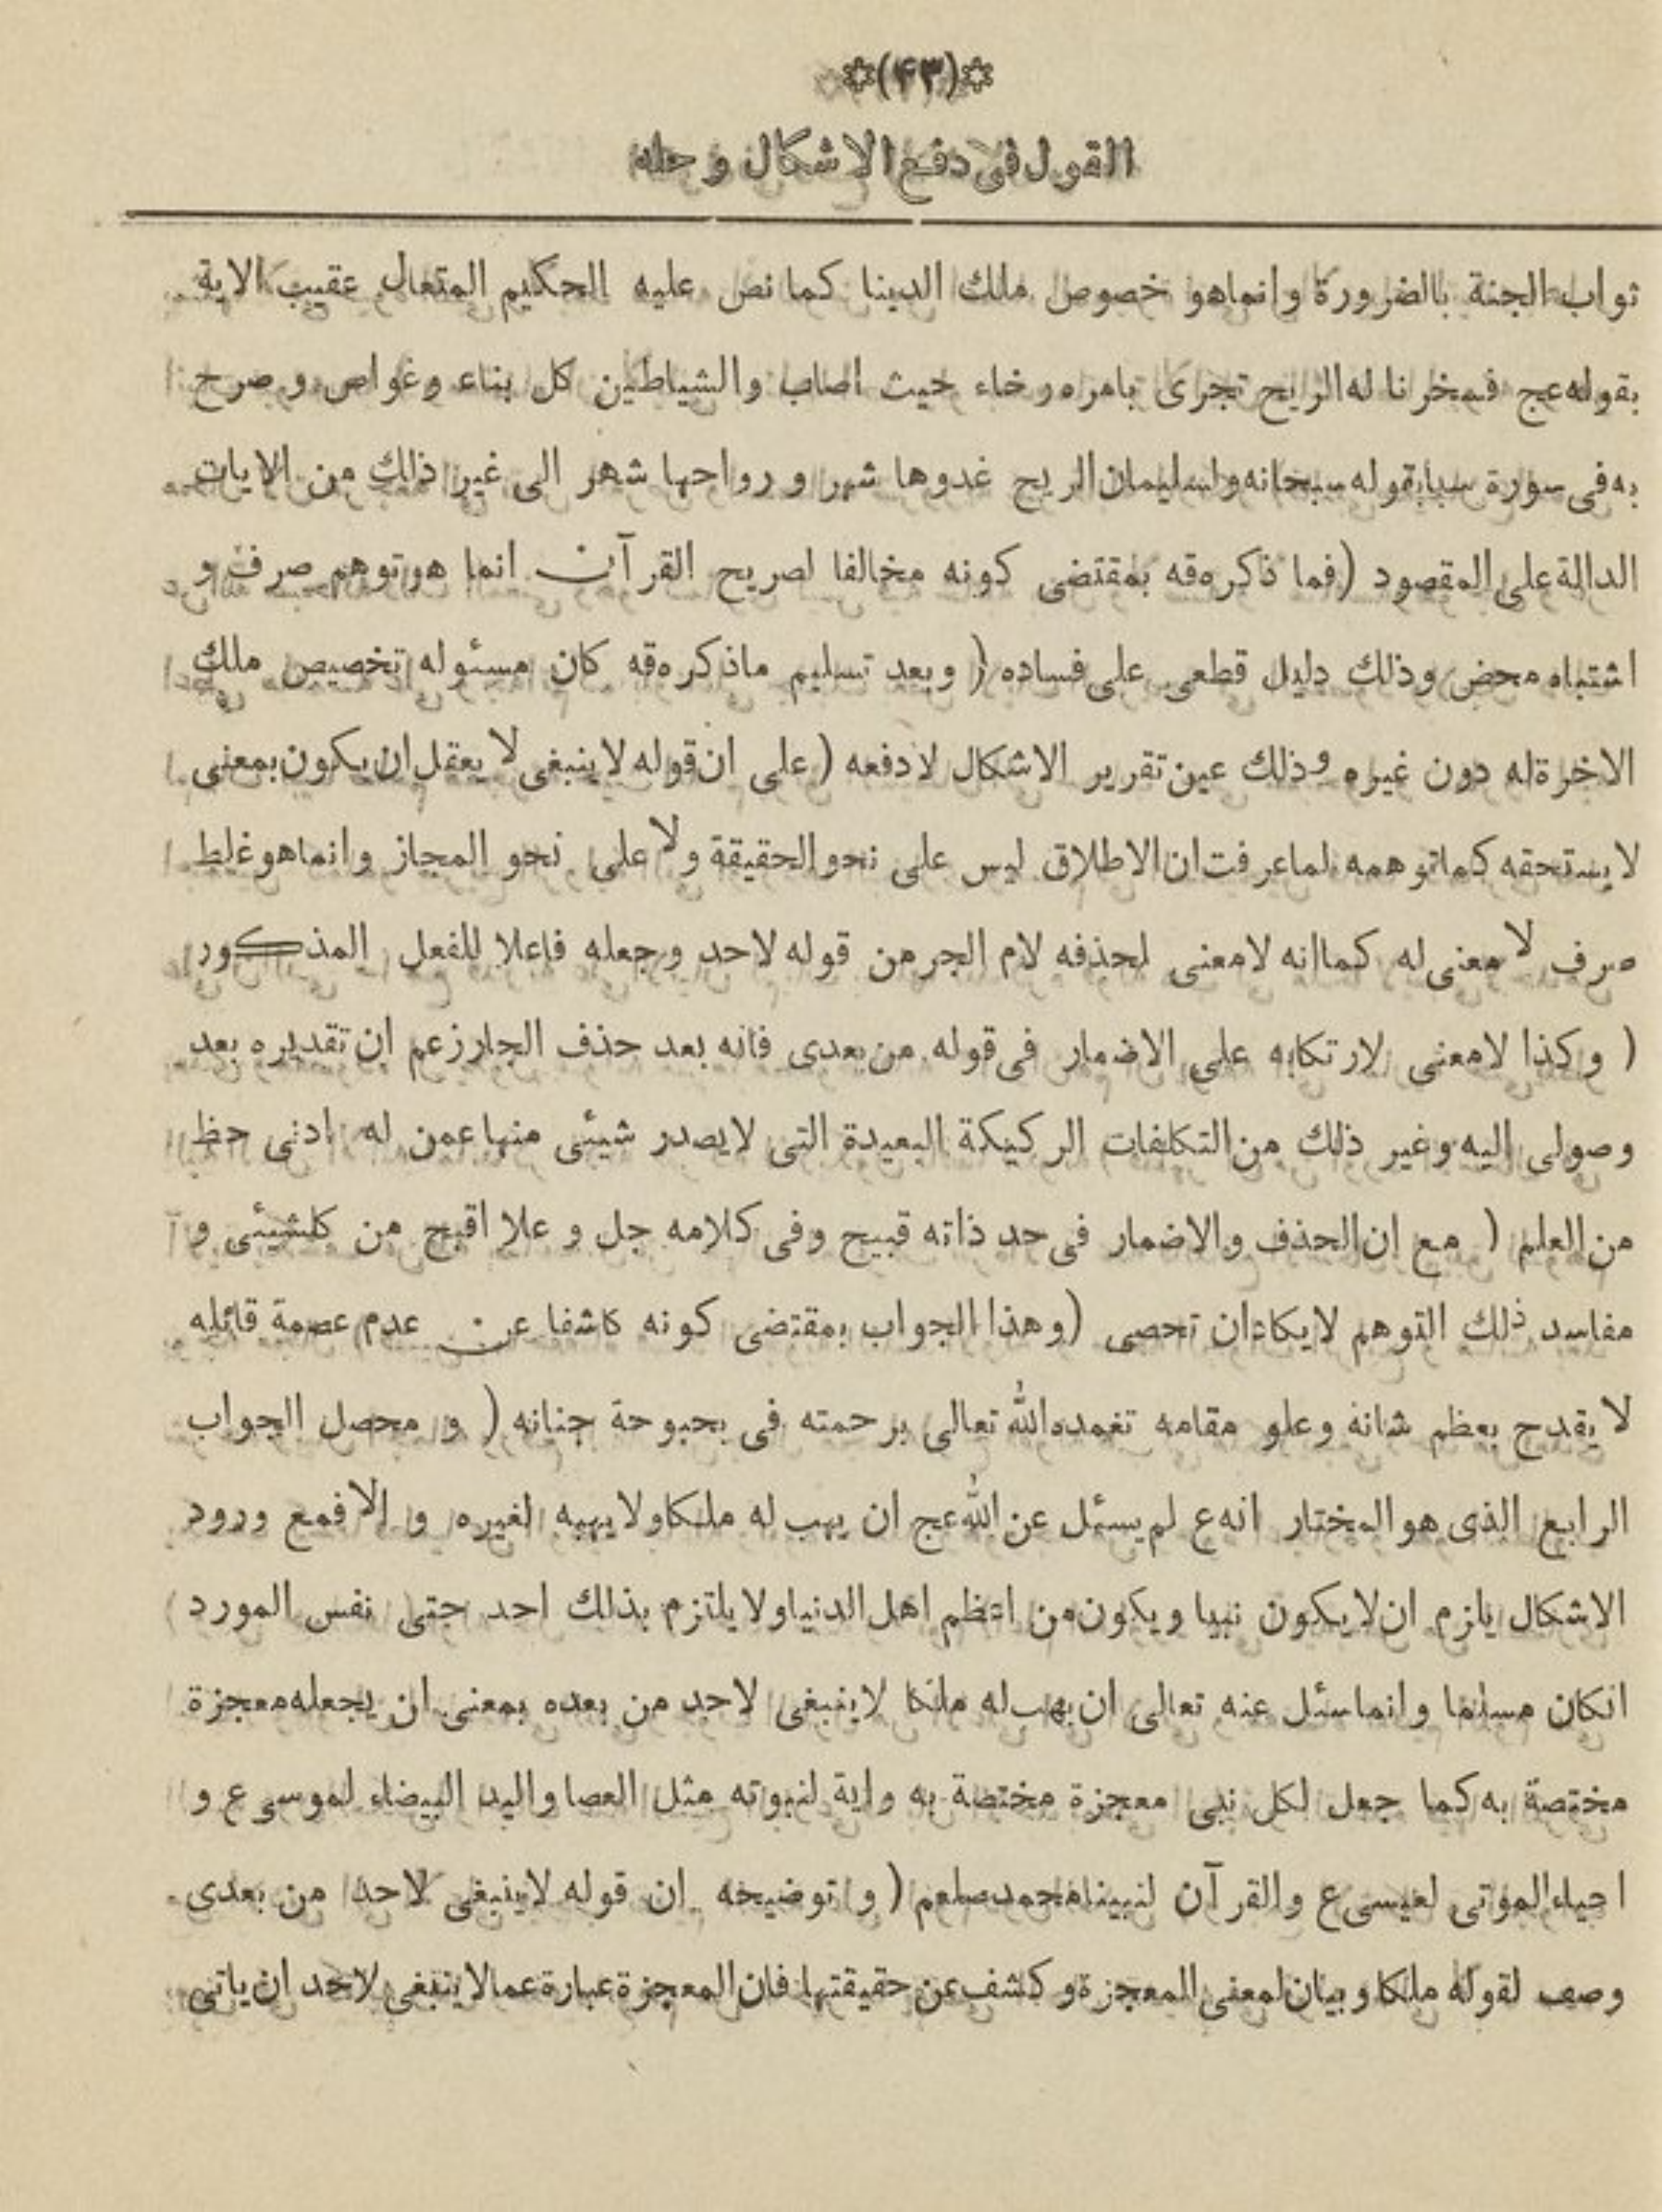 ✡(۴۳)✡
القول فى دفع الاشكال و حله
ثواب الجنة بالضرورة وانماهو خصوص ملك الدينا كما نص عليه الحكيم المتعال عقيب الاية
بقوله عج فسخر نا له الريح تجرى بامره رخاء حيث اصاب والشياطين كل بناء وغواص و صرح
به فى سورة سبابقوله سبحانه ولسليمان الريح غدوها شهر و رواحها شهر الى غير ذلك من الايات
الدالة على المقصود (فما ذكره قه بمقتضى كونه مخالفا لصريح القرآن انما هو توهم صرف و
اشتباه محض وذلك دليل قطعى على فساده ( وبعد تسليم ماذكره قه كان مسئوله تخصيص ملك
الاخرة له دون غيره وذلك عين تقرير الاشكال لا دفعه (على ان قوله لاينبغى لا يعقل ان يكون بمعنى
لايستحقه كما توهمه لما عرفت ان الاطلاق ليس على نحو الحقيقة ولا على نحو المجاز وانماهو غلط
صرف لا معنى له كما انه لا معنى لحذفه لام الجر من قوله لاحد وجعله فاعلا للفعل المذكور
( وكذا لامعنى لارتكابه على الاضمار فى قوله من بعدى فانه بعد حذف الجار زعم ان تقديره بعد
وصولى اليه وغير ذلك من التكلفات الركيكة البعيدة التى لايصدر شيئى منها عمن له ادنى حظ
من العلم ( مع ان الحذف والاضمار فى حد ذاته قبيح وفى كلامه جل و علا اقبح من كلشيئى و
مفاسد ذلك التوهم لايكاد ان تحصى (وهذا الجواب بمقتضى كونه كاشفا عن عدم عصمة قائله
لا يقدح بعظم شانه وعلو مقامه تغمده الله تعالى برحمته فى بحبوحة جنانه ( و محصل الجواب
الرابع الذى هو المختار انه ع لم يسئل عن الله عج ان يهب له ملكا ولا يهبه لغيره و الا فمع ورود
الاشكال يلزم ان لايكون نبيا ويكون من اعظم اهل الدنيا ولا يلتزم بذلك احد حتى نفس المورد
انكان مسلما وانما سئل عنه تعالى ان يهب له ملكا لاينبغى لاحد من بعده بمعنى ان يجعله معجزة
مختصة به كما جعل لكل نبى معجزة مختصة به واية لنبوته مثل العصا واليد البيضاء لموسى ع و
احياء الموتى لعيسى ع والقرآن لنبينا محمد صلعم ( و توضيحه ان قوله لاينبغى لاحد من بعدى
وصف لقوله ملكا و بيان لمعنى المعجزة و كشف عن حقيقتها فان المعجزة عبارة عما لاينبغى لاحد ان ياتى